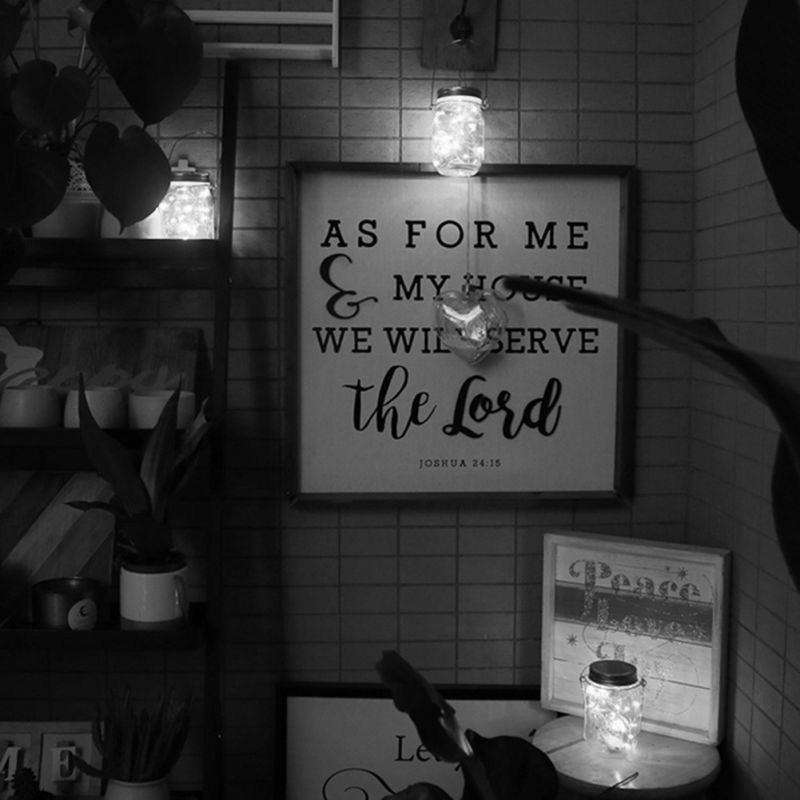 AS FOR ME
& MY HOUSE
WE WILL SERVE
the Lord
JOSHUA 24:15
Peace
Love
ME